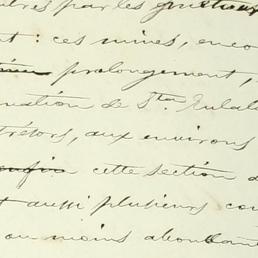 par les
: ces mines, enco
prolongement,
nation de Sta Eulal
trétors, aux environs
enfin cette section d
t aussi plusieurs cou
ou moins abondan